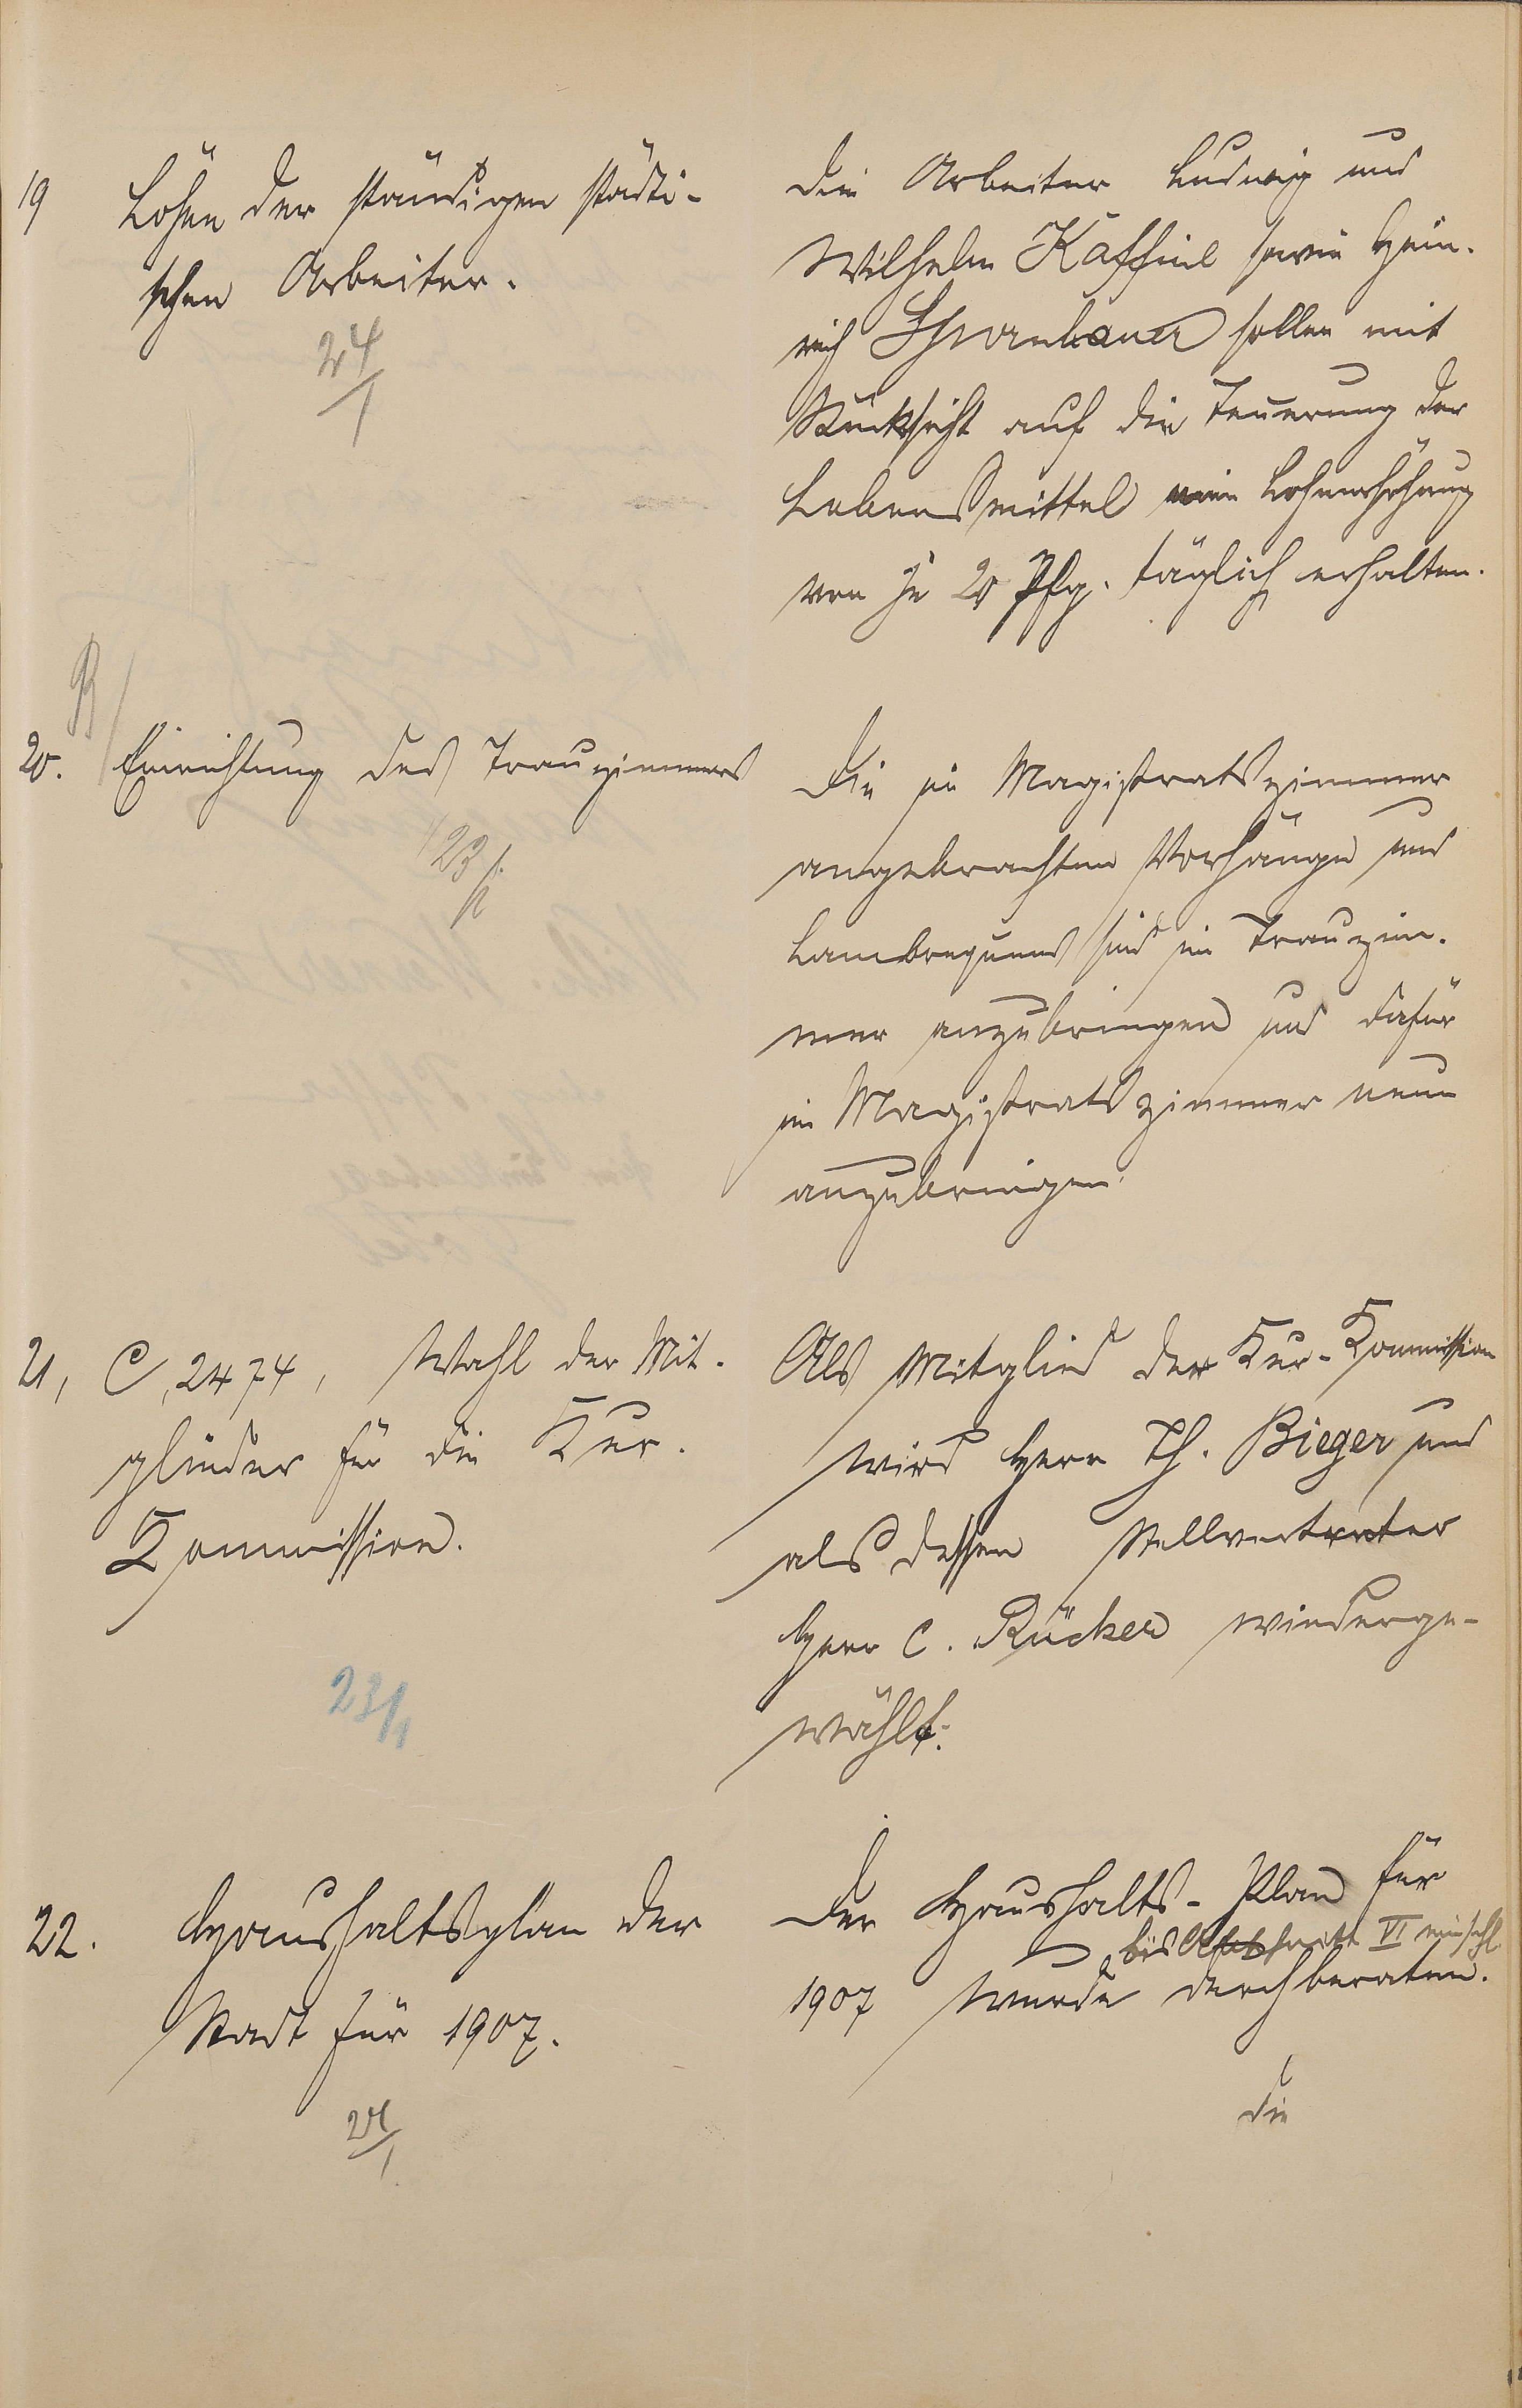 19 Löhne der ständigen städti-
schen Arbeiter.
24/1
Die Arbeiter Ludwig und
Wilhelm Kaffine sowie Hein-
rich Schranbauer sollen mit
Rücksicht auf die Teuerung der
Lebensmittel eine Lohnerhöhung
von je 20 Pfg. täglich erhalten.
20. Einrichtung des Trauzimmers
23/1.
Die im Magistratszimmer
angebrachten Vorhänge und
Lambrequins sind im Trauzim-
mer anzubringen und dafür
im Magistratszimmer neue
anzubringen.
21, C, 2474, Wahl der Mit-
glieder für die Kur-
Kommission.
23/1
Als Mitglied der Kur-Kommission
wird Herr Th. Bieger und
als dessen Stellvertreter
Herr C. Rücker wiederge-
wählt.
22. Haushaltsplan der
Stadt für 1907.
24/1
Der Haushalts-Plan für
bis Abschnitt VI einschl
1907 wurde durchberaten.
Die